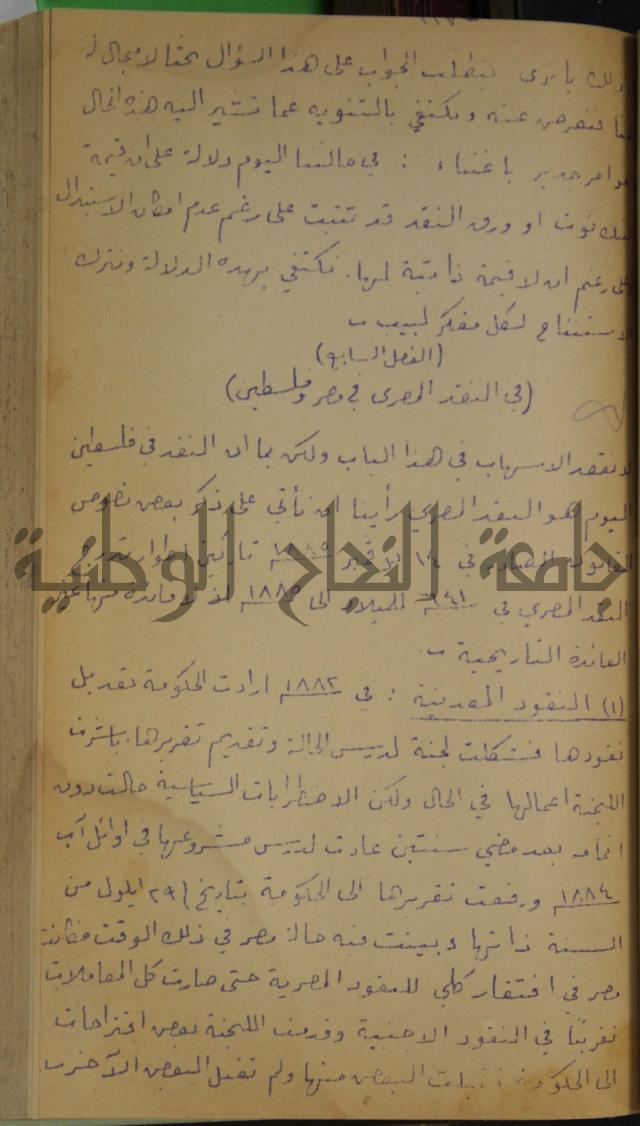 ذلك يا ترى يتطلب الجواب على هذا السؤال بحثا لا مجال له
هنا فنعرض عنه ونكتفي بالتنويه عما تشير اليه هذه الحال
في حالتنا اليوم دلالة على ان قيمة
البنك نوت او ورق النقد قد تثبت على رغم عدم امكان الاستبدال
على رغم ان لا قيمة ذاتية لها. نكتفي بهذه الدلالة ونترك
الاستنتاج لكل مفكر لبيب
(الفصل السابع)
(في النقد المصري في مصر وفلسطين)
لا نقصد الاسهاب في هذا الباب ولكن بما ان النقد في فلسطين
اليوم هو النقد المصري رأينا ان نأتي على ذكر بعض نصوص
القانون الصادر في ١٤ ١٨٨٥ تاركين اطوار تدرج
النقد المصري في للميلاد الى ١٨٨٥ اذ لا فائدة منها غير
الفائدة التاريخية
(١) النقود المعدنية : في ١٨٨٢ ارادت الحكومة تعديل
نقودها فشكلت لجنة لدرس الحالة وتقديم تقريرها. باشرت
اللجنة اعمالها في الحال ولكن الاضطرابات السياسية حالت دون
اتمامه بعد مضي سنتين عادت لدرس مشروعها في اوائل آب
١٨٨٤ ورفعت تقريرها الى الحكومة بتاريخ (٢٩ ايلول من
السنة ذاتها وبينت فيه حالة مصر في ذلك الوقت فكانت
مصر في افتقار كلي للنقود المصرية حتى صارت كل المعاملات
تقريبًا في النقود الاجنبية وقدمت اللجنة بعض اقتراحات
الى الحكومة البعض منها ولم تقبل البعض الآخر
جامعة النجاح الوطنية